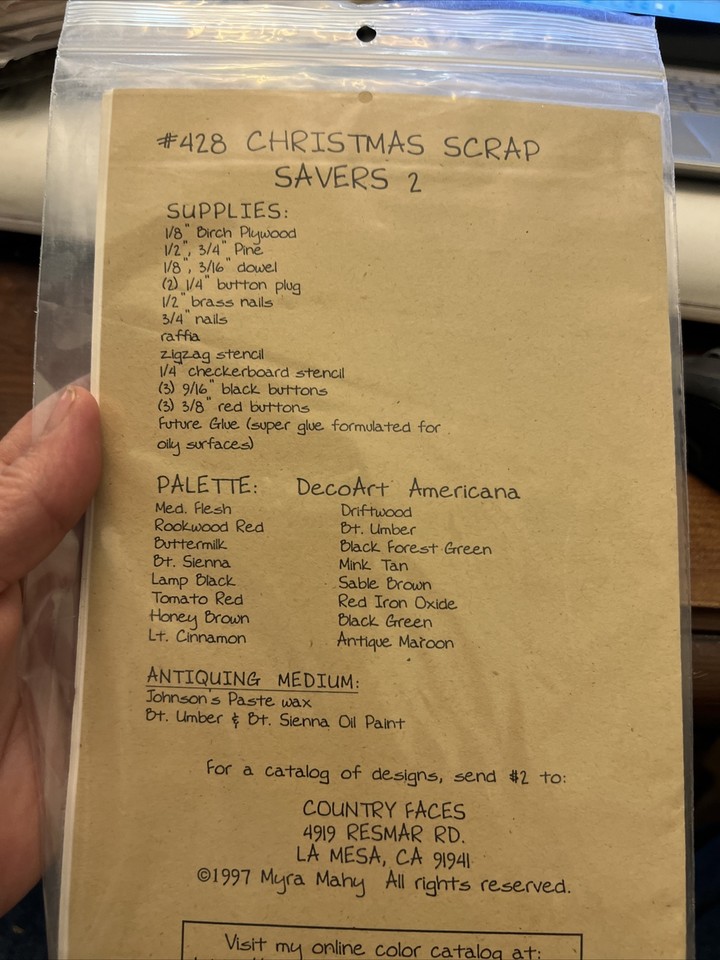 #428 CHRISTMAS SCRAP
SAVERS 2
SUPPLIES:
1/8" Birch Plywood
1/2", 3/4" Pine
1/8", 3/16" dowel
(2) 1/4" button plug
1/2" brass nails
3/4" nails
raffia
zigzag stencil
1/4" checkerboard stencil
(3) 9/16" black buttons
(3) 3/8" red buttons
Future Glue (super glue formulated for
oily surfaces)
PALETTE: DecoArt Americana
Med. Flesh Driftwood
Rookwood Red Bt. Umber
Buttermilk Black Forest Green
Bt. Sienna Mink Tan
Lamp Black Sable Brown
Tomato Red Red Iron Oxide
Honey Brown Black Green
Lt. Cinnamon Antique Maroon
ANTIQUING MEDIUM:
Johnson's Paste wax
Bt. Umber & Bt. Sienna Oil Paint
For a catalog of designs, send $2 to:
COUNTRY FACES
4919 RESMAR RD.
LA MESA, CA 91941
©1997 Myra Mahy All rights reserved.
Visit my online color catalog at: